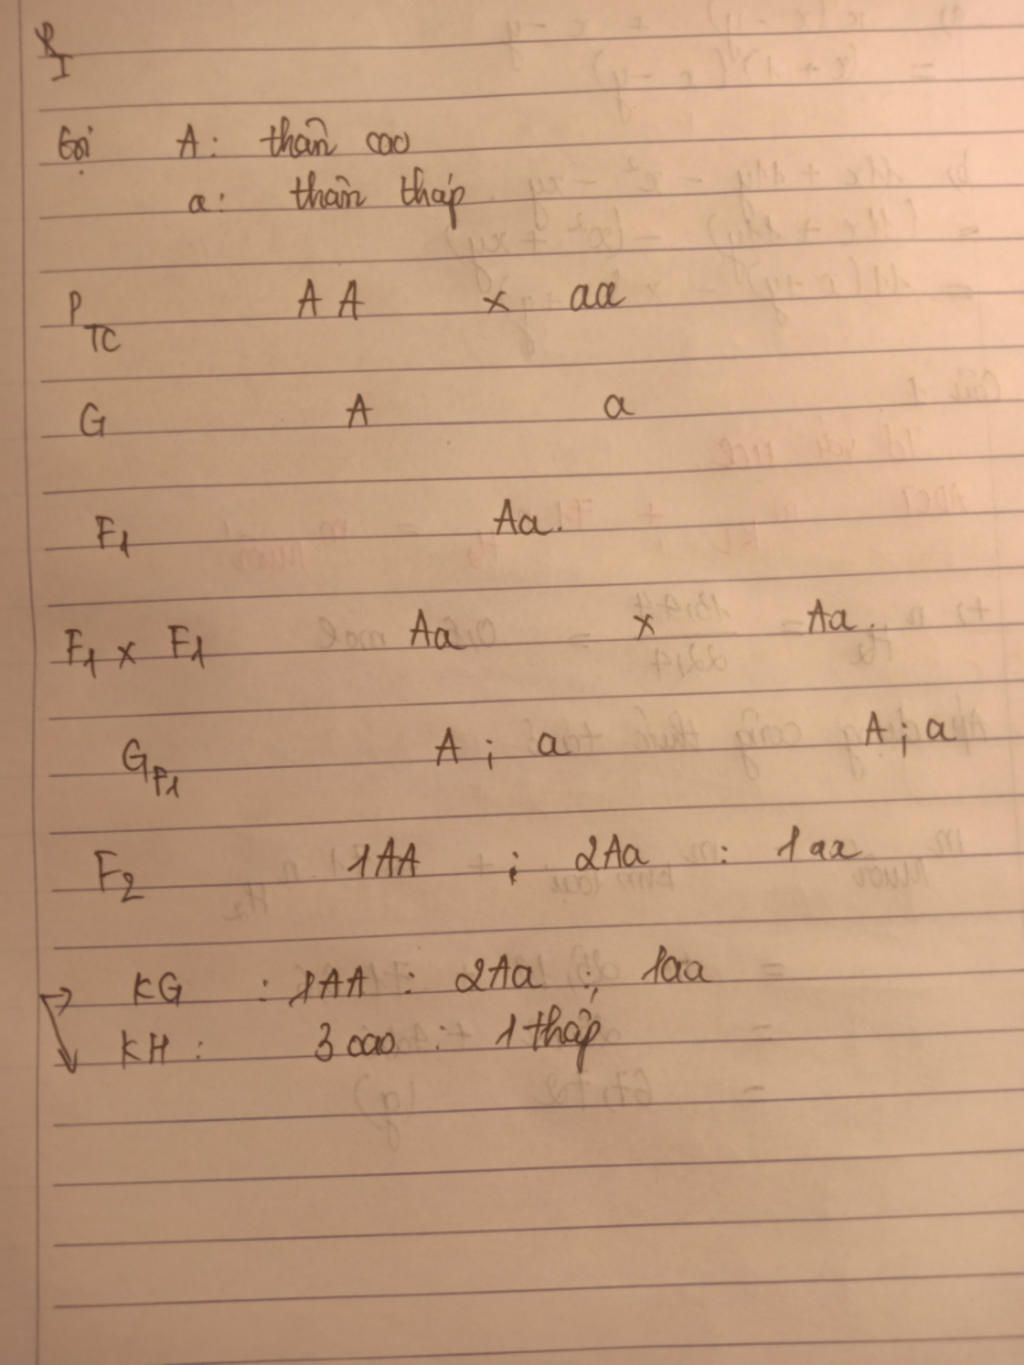 Gọi A: thân cao
a: thân thấp
P TC AA x aa
G A a
F1 Aa.
F1 x F1 Aa x Aa.
GF1 A ; a A ; a
F2 1AA ; 2Aa : 1aa
KG : 1AA : 2Aa : 1aa
KH : 3 cao : 1 thấp